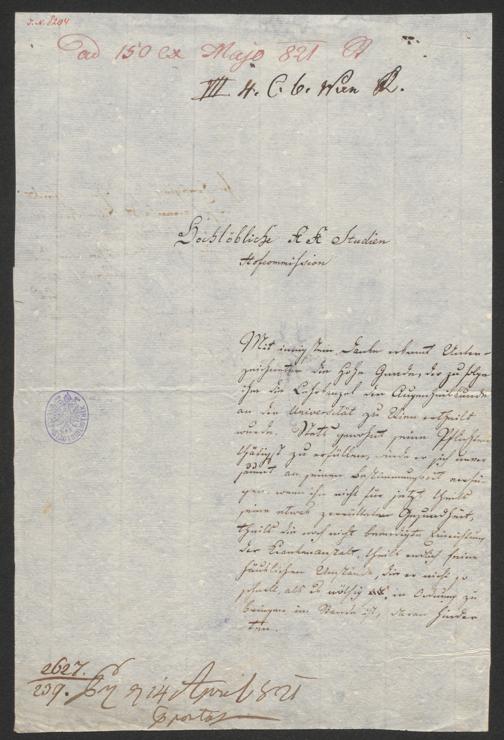 J. N. 8204
ad 150 ex Majo 821
III 4. C. b. Wien R.
Hochlöbliche K K Studien
Hofcommission
Mit innigstem Danke erkennt Unter-
zeichneter die hohe Gnade, der zufolge
ihm die Lehrkanzel der Augenheilkunde
an der Universität zu Wien ertheilt
wurde. Stets gewohnt seine Pflichten
thätigst zu erfüllen, würde er sich
an seinen Bestimmungsort verfü-
gen, wenn ihn nicht für jetzt theils
seine etwas zerrüttete Gesundheit,
theils die noch nicht beendigte Einrichtung
der Krankenanstalt, theils endlich seine
häuslichen Umstände, die er nicht so
schnell, als es nöthig in Ordnung zu
bringen im Stande ist, daran hinder-
ten.
2627.
239.
14 April 821